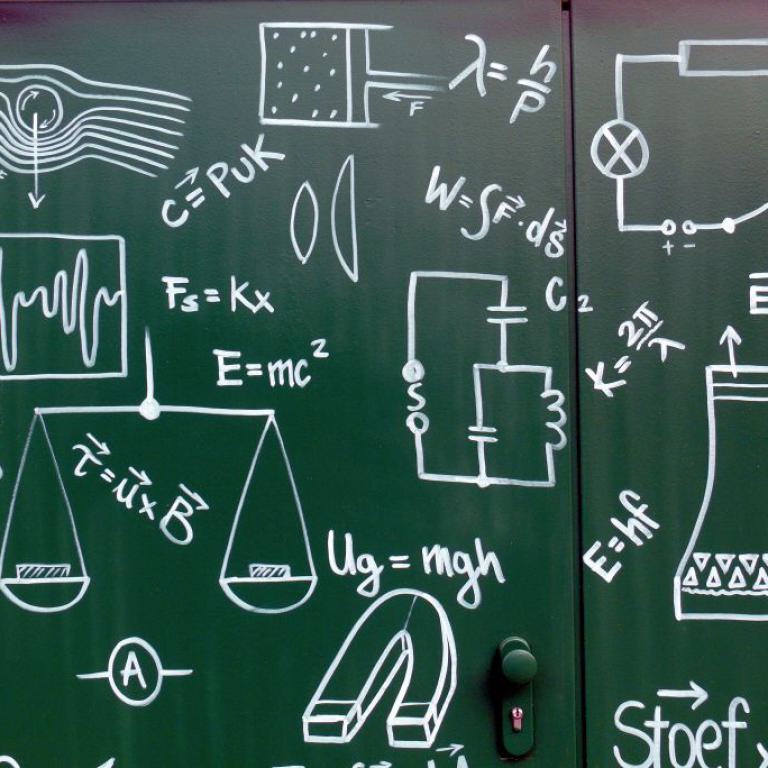 λ = h/p
F
C⃗ = PUK
W = ∫F⃗ · ds⃗
+ -
Fs = Kx
C₂
K = 2π/λ
E = mc²
S
τ⃗ = u⃗ x B⃗
E = hf
Ug = mgh
A
Stoef